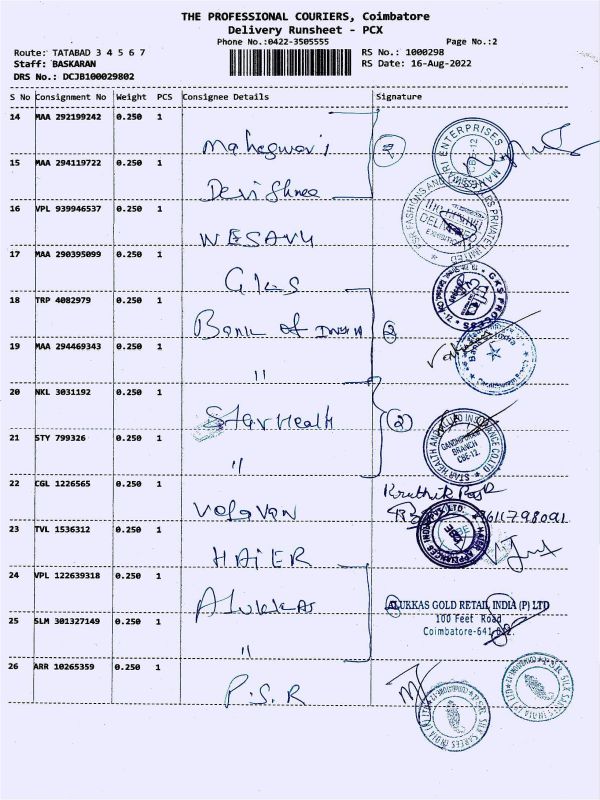 THE PROFESSIONAL COURIERS, Coimbatore
Delivery Runsheet - PCX
Phone No.:0422-3505555 Page No.:2
Route: TATABAD 3 4 5 6 7 RS No.: 1000298
Staff: BASKARAN RS Date: 16-Aug-2022
DRS No.: DCJB100029802
S No Consignment No Weight PCS Consignee Details Signature
14 MAA 292199242 0.250 1
Maheswari
MAHESWARI ENTERPRISES
15 MAA 294119722 0.250 1
Devi Shree
16 VPL 939946537 0.250 1
WESAVU
17 MAA 290395099 0.250 1
GKS
GKS PROCESS
18 TRP 4082979 0.250 1
Bank of India
2
19 MAA 294469343 0.250 1
"
20 NKL 3031192 0.250 1
Star Health
2
STAR HEALTH AND ALLIED INSURANCE CO.LTD
BRANCH
CBE-12
21 STY 799326 0.250 1
"
22 CGL 1226565 0.250 1
Velavan
23 TVL 1536312 0.250 1
HAIER
24 VPL 122639318 0.250 1
Alukkas
ALUKKAS GOLD RETAIL INDIA (P) LTD
100 Feet Road
25 SLM 301327149 0.250 1
Coimbatore-641 012.
"
26 ARR 10265359 0.250 1
P.S.R
PSR SILK SAREES INDIA (P) LTD
COIMBATORE-12
PSR SILK SAREES INDIA (P) LTD
COIMBATORE-12